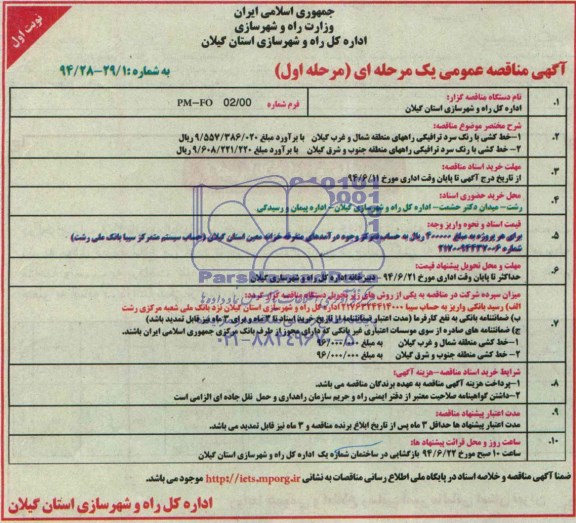 نوبت اول
جمهوری اسلامی ایران
وزارت راه و شهرسازی
اداره کل راه و شهرسازی استان گیلان
آگهی مناقصه عمومی یک مرحله ای (مرحله اول)
به شماره: ۹۴/۲۸-۲۹/۱
۱. نام دستگاه مناقصه گزار:
اداره کل راه و شهرسازی استان گیلان
فرم شماره PM-FO 02/00
۲. شرح مختصر موضوع مناقصه:
۱-خط کشی با رنگ سرد ترافیکی راههای منطقه شمال و غرب گیلان با برآورد مبلغ ۹/۵۵۷/۳۸۶/۰۲۰ ریال
۲-خط کشی با رنگ سرد ترافیکی راههای منطقه جنوب و شرق گیلان با برآورد مبلغ ۹/۶۰۸/۲۲۱/۲۲۰ ریال
۳. مهلت خرید اسناد مناقصه:
از تاریخ درج آگهی تا پایان وقت اداری مورخ ۹۴/۶/۱۱
۴. محل خرید حضوری اسناد:
رشت- میدان دکتر حشمت- اداره کل راه و شهرسازی گیلان- اداره پیمان و رسیدگی
۵. قیمت اسناد و نحوه واریز وجه:
برای هر پروژه به مبلغ ۴۰۰۰۰۰ ریال به حساب تمرکز وجوه درآمدهای متفرقه خزانه معین استان گیلان (حساب سیستم متمرکز سیبا بانک ملی رشت)
شماره ۲۱۷۰۰۹۴۴۳۷۰۰۶
۶. مهلت و محل تحویل پیشنهاد قیمت:
حداکثر تا پایان وقت اداری مورخ ۹۴/۶/۲۱ دبیرخانه اداره کل راه و شهرسازی گیلان
۷. میزان سپرده شرکت در مناقصه به یکی از روش های زیر تحویل دستگاه مناقصه گزار گردد:
الف) رسید بانکی واریز به حساب سیبا ۲۱۷۶۳۲۴۱۴۰۰۰ اداره کل راه و شهرسازی استان گیلان نزد بانک ملی شعبه مرکزی رشت
ب) ضمانتنامه بانکی به نفع کارفرما (مدت اعتبار ضمانتنامه از تاریخ خرید اسناد تا ۳ ماه و برای ۳ ماه نیز قابل تمدید باشد)
ج) ضمانتنامه های صادره از سوی موسسات اعتباری غیر بانکی که دارای مجوز از طرف بانک مرکزی جمهوری اسلامی ایران باشند.
۱- خط کشی منطقه شمال و غرب گیلان به مبلغ ۹۶/۰۰۰/۰۰۰
۲- خط کشی منطقه جنوب و شرق گیلان به مبلغ ۹۶/۰۰۰/۰۰۰
۸. شرایط خرید اسناد مناقصه-هزینه آگهی:
۱-پرداخت هزینه آگهی مناقصه به عهده برندگان مناقصه می باشد.
۲-داشتن گواهینامه صلاحیت معتبر از دفتر ایمنی راه و حریم سازمان راهداری و حمل نقل جاده ای الزامی است
۹. مدت اعتبار پیشنهاد مناقصه:
مدت اعتبار پیشنهاد ها حداقل ۳ ماه پس از تاریخ ابلاغ برنده مناقصه و ۳ ماه نیز قابل تمدید می باشد.
۱۰. ساعت روز و محل قرائت پیشنهاد ها:
ساعت ۱۰ صبح مورخ ۹۴/۶/۲۲ بازگشایی در ساختمان شماره یک اداره کل راه و شهرسازی استان گیلان
ضمنا آگهی مناقصه و خلاصه اسناد در پایگاه ملی اطلاع رسانی مناقصات به نشانی http://iets.mporg.ir موجود می باشد.
اداره کل راه و شهرسازی استان گیلان
۰۲۱-۸۸۳۴۹۶۷۰